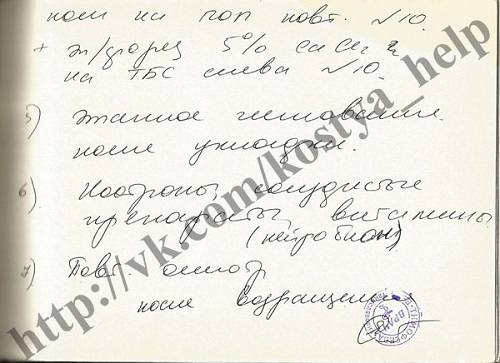 на ПОП повт. №10.
+ эл/форез 5% CaCl₂
на ТБС слева №10.
5) Этапное гипсование
после укладки.
6) Ноотропы, сосудистые
препараты, витамины
(нейробион)
7) Повт. осмотр
после возвращения
http://vk.com/kostya_help
ВРАЧ